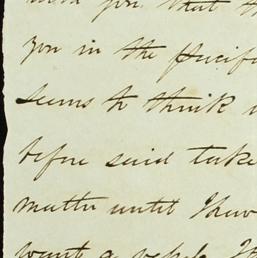 you that th
you in the pucif
seems to think
before said take
matter until I hav
want a